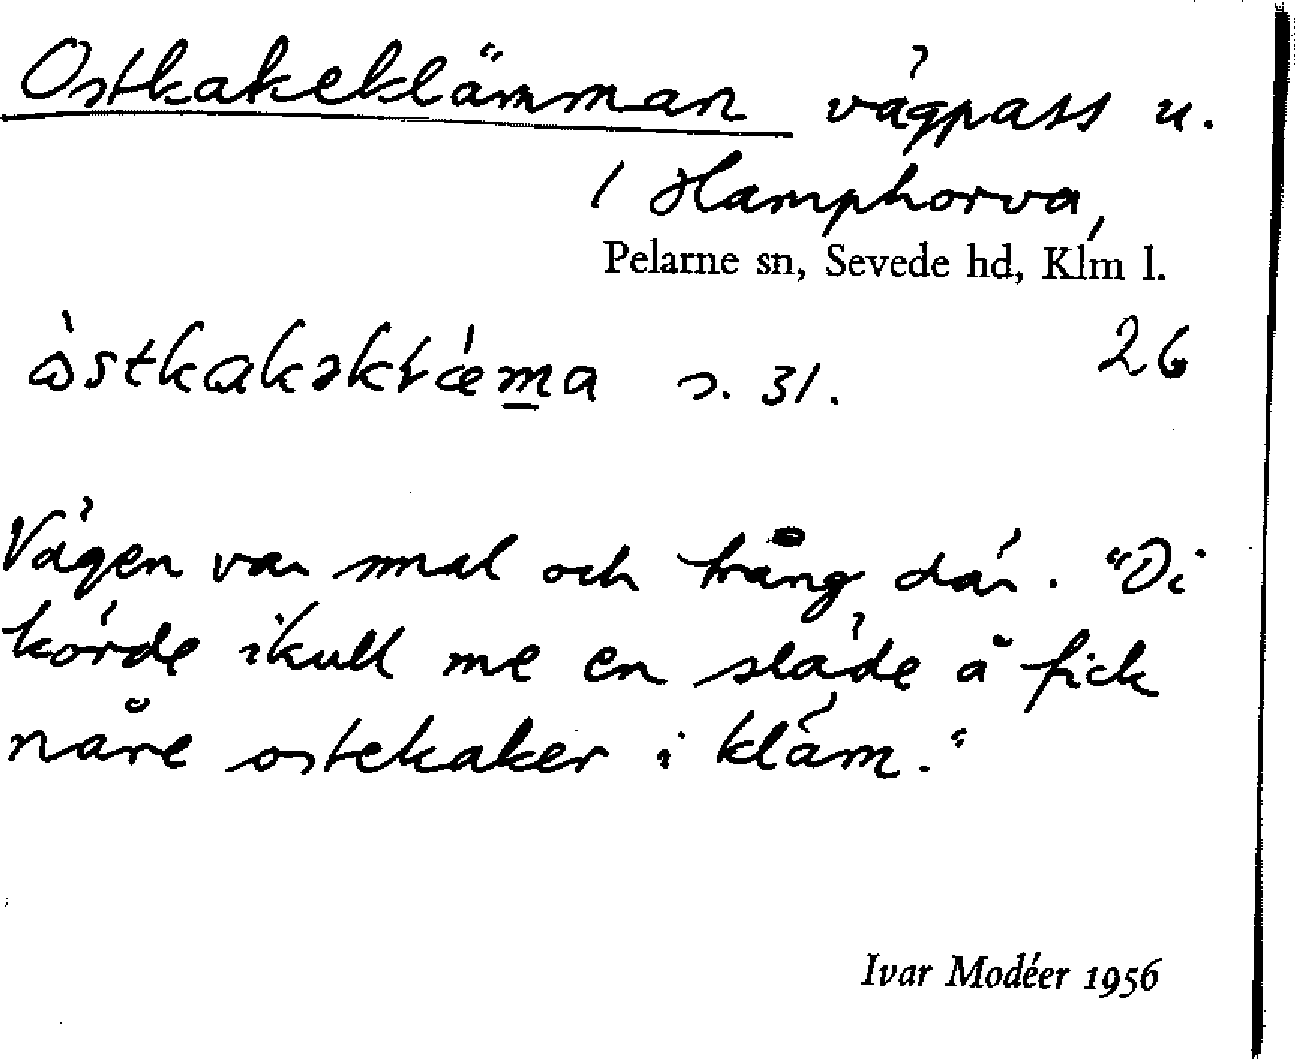 Ostkakeklämman vägpass u.
1 Hamphorva,
Pelarne sn, Sevede hd, Klm l.
26
s. 31.
Vägen var smal och trång där. "Di
körde ikull me en släde å fick
nåre ostekaker i kläm."
Ivar Modéer 1956